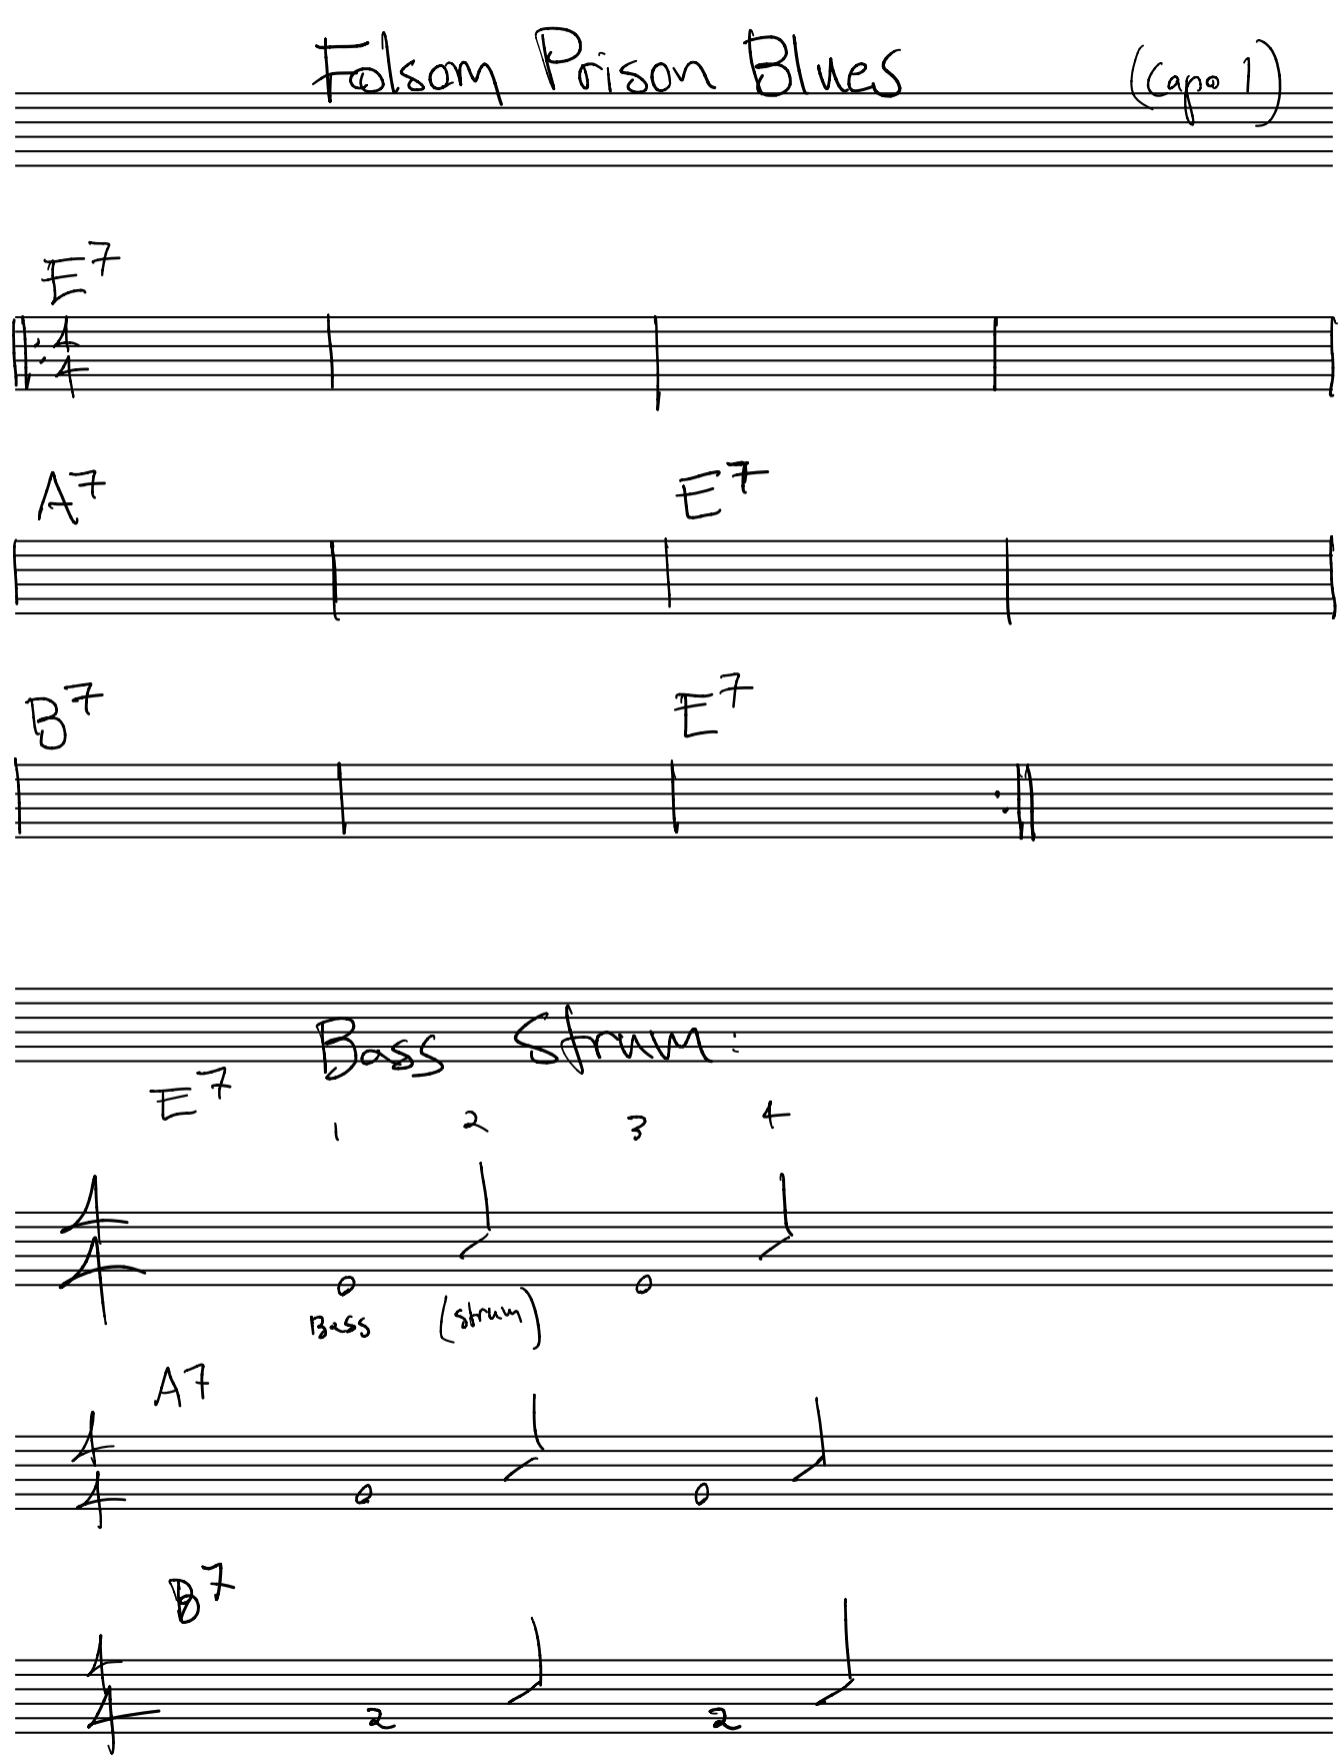 Folsom Prison Blues (Capo 1)
E7
4
4
A7 E7
B7 E7
Bass Strum:
E7
1 2 3 4
4
4 0 0
Bass (strum)
A7
4
4 0 0
B7
4
4 2 2